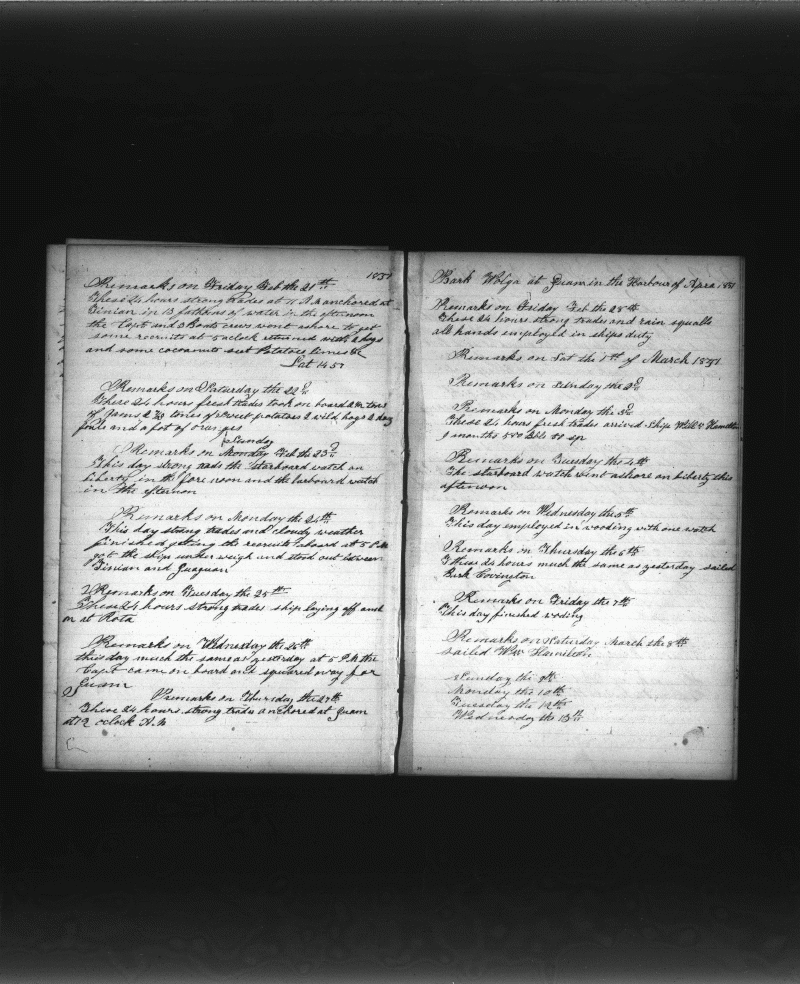 1851
Remarks on Friday Feb the 21st
These 24 hours strong trades at 11 A.M anchored at
Tinian in 13 fathoms of water in the afternoon
the Capt and 2 Boats crews went ashore to get
some recruits at 5 oclock returned with 2 hogs
and some cocoanuts sweet Potatoes Limes &c
Lat 14.57
Remarks on Saturday the 22d
These 24 hours fresh trades took on board 2 tons
of yams 2 tones of sweet potatoes 2 wild hogs 2 doz
fouls and a lot of oranges
Sunday
Remarks on Monday Feb the 23d
This day strong trads the starboard watch on
liberty in the fore noon and the larboard watch
in the afternoon
Remarks on Monday the 24th
This day strong trades and cloudy weather
finished getting the recruits aboard at 5 P.M
got the ship under weigh and stood out between
Tinian and
Remarks on Tuesday the 25th
These 24 hours strong trades ship laying off and
on at Rota
Remarks on Wednesday the 26th
this day much the same as yesterday at 5 P.M the
Capt came on board and squared away for
Guam
Remarks on Thursday the 27th
These 24 hours strong trades anchored at Guam
at 12 oclock A.M
Bark Wolga at Guam in the Harbour of Apra 1851
Remarks on Friday Feb the 28th
These 24 hours strong trades and rain squalls
all hands employed in ships duty
Remarks on Sat the 1st of March 1851
Remarks on Sunday the 2d
Remarks on Monday the 3d
These 24 hours fresh trades arrived Ship Wm Hamilton
9 months 580 bbls 80 sp
Remarks on Tuesday the 4th
The starboard watch went ashore on liberty this
afternoon
Remarks on Wednesday the 5th
This day employed in wooding with one watch
Remarks on Thursday the 6th
These 24 hours much the same as yesterday sailed
Bark Covington
Remarks on Friday the 7th
This day finished woding
Remarks on Saturday March the 8th
sailed Wm Hamilton
Sunday the 9th
Monday the 10th
Tuesday the 11th
Wednesday the 12th